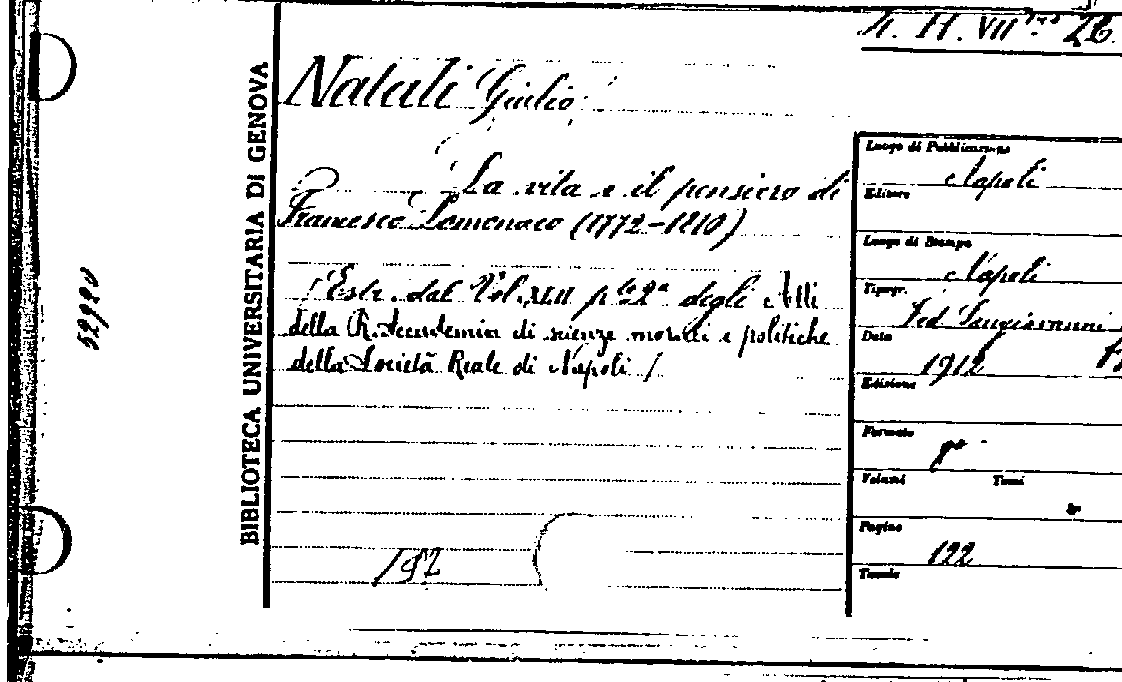 BIBLIOTECA UNIVERSITARIA DI GENOVA
Natali Giulio
La vita e il pensiero di
Francesco Lomonaco (1772-1810)
/Estr. dal Vol. XLII pte 2a degli Atti
della R. Accademia di scienze morali e politiche
della Società Reale di Napoli /
192
Luogo di Pubblicazione
Napoli
Editore
Luogo di Stampa
Napoli
Tipogr.
Fed. Sangiovanni
Data
1912
Edizione
Formato
8°
Volumi Tomi
Pagine
122
Tavole